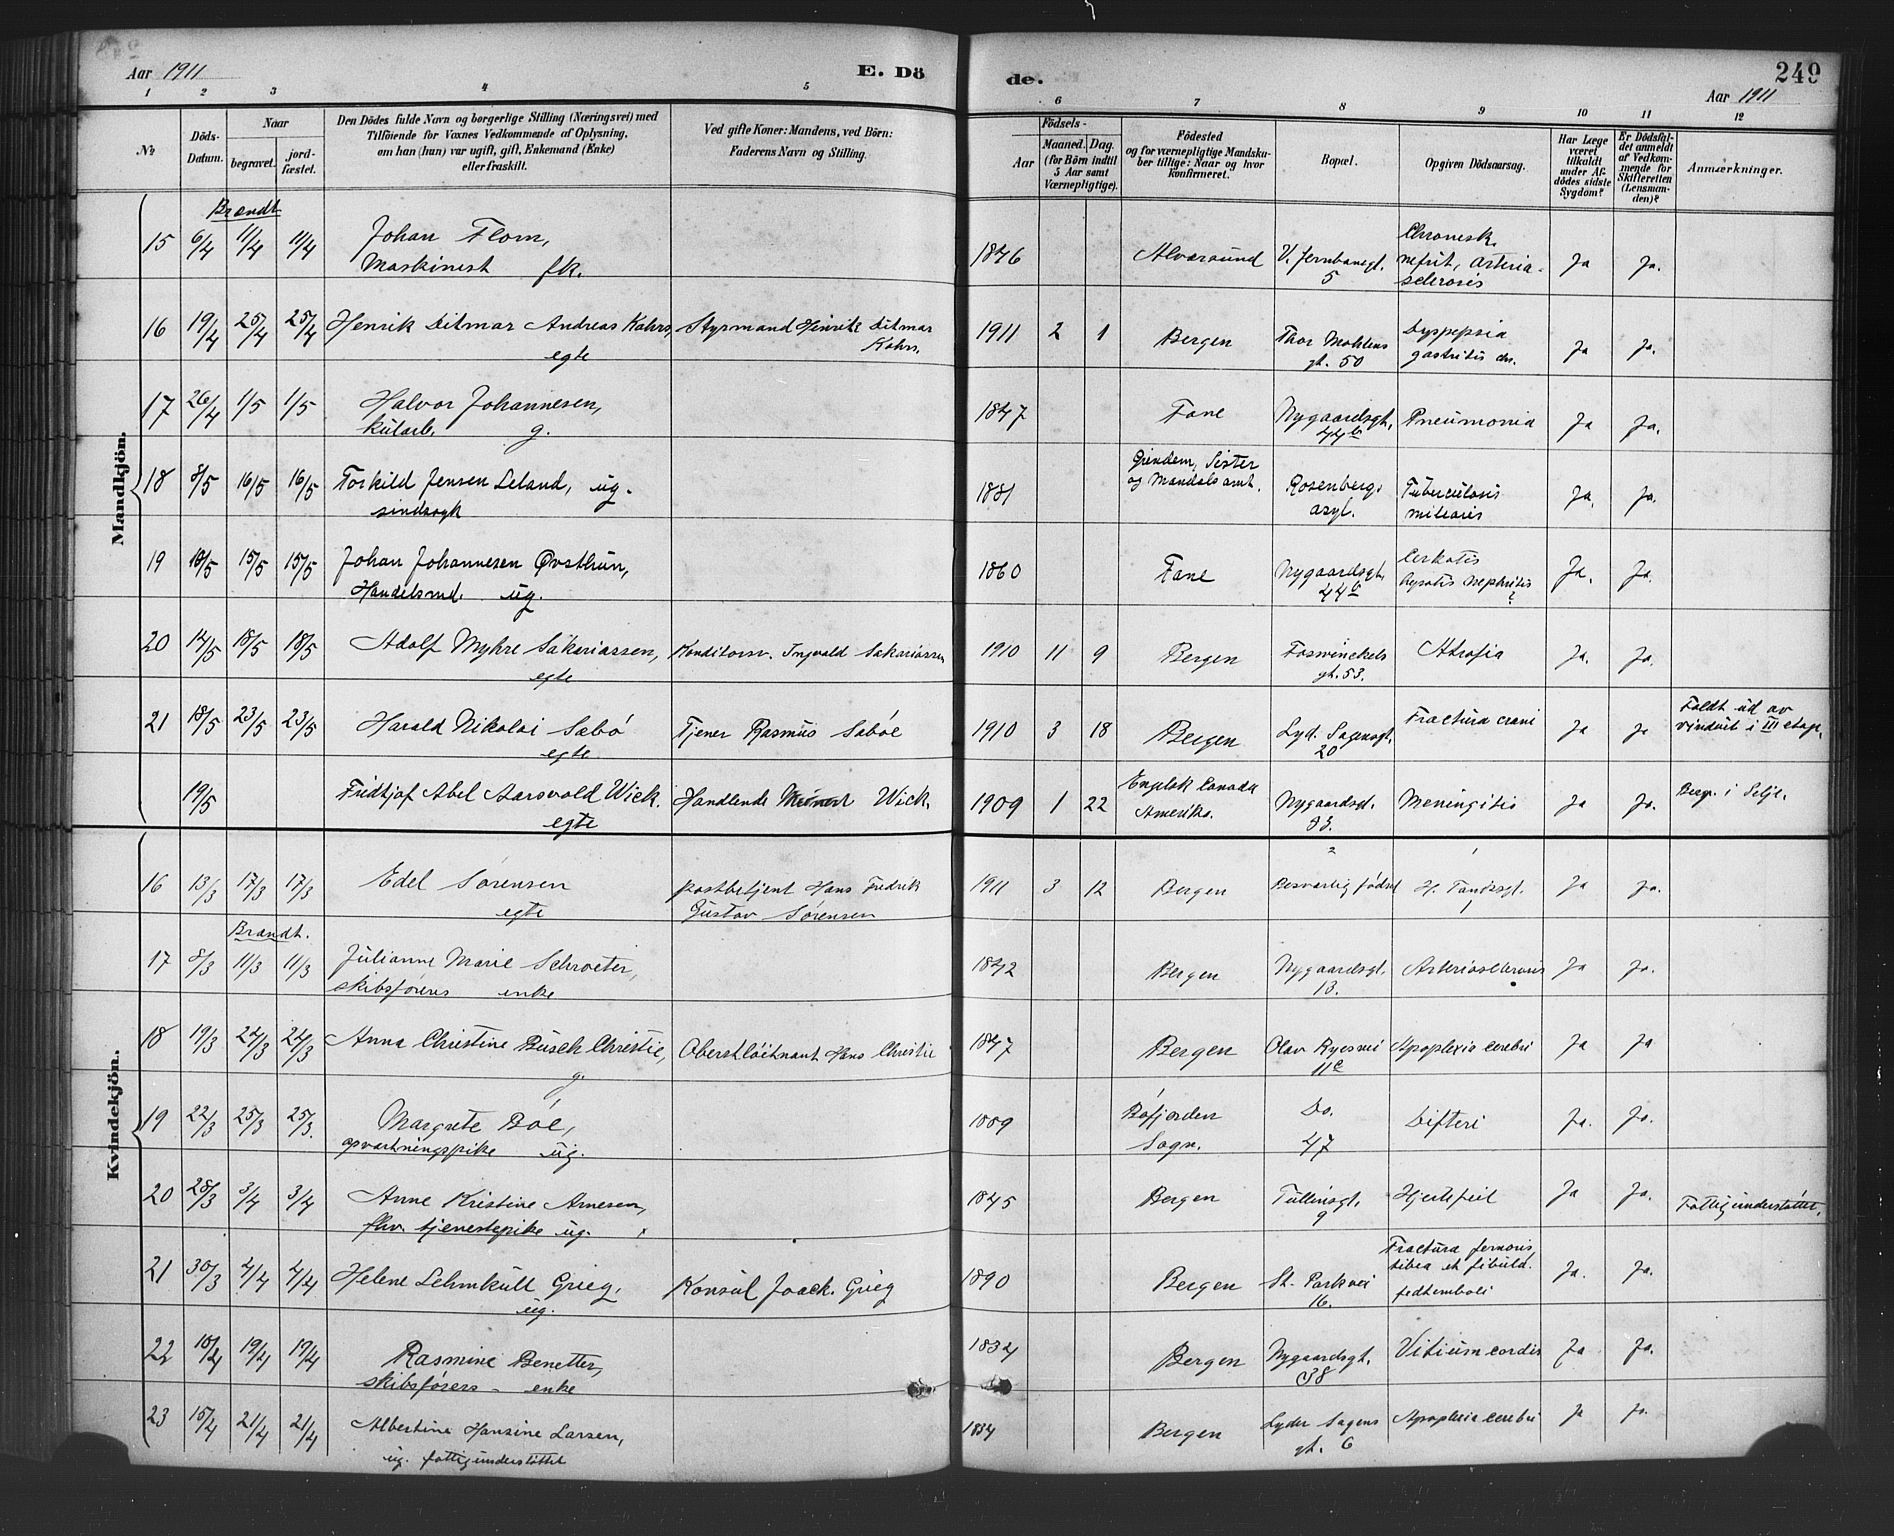 Aar 1911
E. Dö
de.
249
Aar 1911
1 2 3 4 5 6 7 8 9 10 11 12
№
Döds-Datum.
Naar
begravet.
jord-fæstet.
Den Dödes fulde Navn og borgerlige Stilling (Næringsvei) med
Tilföiende for Voxnes Vedkommende af Oplysning,
om han (hun) var ugift, gift, Enkemand (Enke)
eller fraskilt.
Ved gifte Koner: Mandens, ved Börn:
Faderens Navn og Stilling.
Födsels-
Aar
Maaned.
Dag.
(for Börn indtil
5 Aar samt
Værnepligtige).
Födested
og for værnepligtige Mandska-
ber tillige: Naar og hvor
konfirmeret.
Bopæl.
Opgiven Dödsaarsag.
Har Læge
været
tilkaldt
under Af-
dödes sidste
Sygdom?
Er Dödsfal-
det anmeldt
af Vedkom-
mende for
Skifteretten
(Lensman-
den)?
Anmærkninger.
Mandkjön.
Brændt
15 6/4 11/4 11/4 Johan Flom, 1846 Alversund V. Jernbanegt. Chronisk Ja Ja.
Maskinist fk. 5 nefrit, arterio-
sclerosis
16 19/4 25/4 25/4 Henrik Ditmar Andreas Kahrs, Styrmand Hinrik Ditmar 1911 2 1 Bergen Thor Mohlens Dyspepsia Ja Ja.
egte Kahrs. gt. 50 gastritis chr.
17 26/4 1/5 1/5 Halvor Johannesen, 1847 Fane Nygaardsgt. Pneumonia Ja Ja.
kularb. g. 44b
18 8/5 16/5 16/5 Torkild Jensen Leland, ug. 1881 Rosenbergs Tuberculosis Ja. Ja.
sindssyk og Mandals amt. asyl. miliaris
19 10/5 15/5 15/5 Johan Johannesen Øvsthun, 1860 Fane Nygaardsgt. Ja. Ja.
Handelsmd. ug. 44b Nephritis
20 14/5 18/5 18/5 Adolf Myhre Sakariassen, Konditorsv. Ingvald Sakariassen 1910 11 9 Bergen Fosswinckels Atrofia Ja. Ja.
egte gt. 53.
21 18/5 23/5 23/5 Harald Nikolai Sæbö Tjener Rasmus Saböe 1910 3 18 Bergen Lyd. Sagensgt. Fractura crani Ja Ja Faldt ud av
egte 20 vinduet i III etage.
19/5 Fridtjof Abel Aarsvold Wick. Handlende Wick. 1909 1 22 Engelsk Canada Nygaardsgt. Meningitis Ja Ja. Begr. i Selje.
egte Amerika. 93.
Kvindekjön.
16 13/3 17/3 17/3 Edel Sörensen postbetjent Hans Fredrik 1911 3 12 Bergen Besværlig födsel H. Tandsgt. Ja Ja.
egte Gustav Sörensen 1
Brændt.
17 8/3 11/3 11/3 Julianne Marie Schroeter, 1842 Bergen Nygaardsgt. Arteriosclerosis Ja Ja.
skibsförers enke 13.
18 19/3 24/3 24/3 Anna Christine Busch Christie, Oberstlöitnant Hans Christie 1847 Bergen Olav Ryesvei Apoplexia cerebri Ja Ja
g. 11c
19 22/3 25/3 25/3. Margrete Böe, 1889 Böfjorden Do. Difteri Ja. Ja.
opvartningspike ug. Sogn. 47
20 28/3 3/4 3/4 Anne Kristine Arnesen, 1845 Bergen Tullinsgt. Hjertefeil Ja Ja. Fattigunderstöttet.
fhv. tjenestepike ug. 9
21 30/3 4/4 4/4 Helene Lehmkull Grieg, Konsul Joach. Grieg 1890 Bergen St. Parkvei Fractura femoris Ja. Ja.
ug. 16. tibia et fibuld.
fedtemboli
22 10/4 19/4 19/4 Rasmine Benetter, 1834 Bergen Nygaardsgt. Vitium cordis Ja Ja.
skibsförers - enke 38
23 15/4 21/4 21/4 Albertine Hansine Larsen, 1834 Bergen Lyder Sagens Apoplexia cerebri Ja Ja.
ug. fattigunderstöttet gt. 6